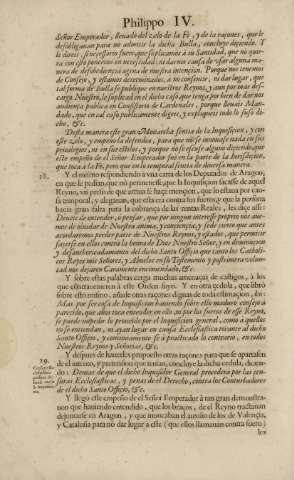 Philippo IV.
Señor Emperador, llenado del zelo de la Fè, y de la razones, que le
desobligauan para no admitir la dicha Bulla, concluye diziendo. Y
si dizeis, que suplicamos a su Santidad, que no quie-
ra con esto ponernos en necessidad, ni darnos causa de vsar alguna ma-
nera de desobediencia agena de nuestra intencion. Porque nos tenemos
de Consejo, y estamos determinados, a no consentir, ni dar lugar, que
tal forma de Bulla se publique en nuestros Reynos, y aun por mas des-
cargo Nuestro, le suplicad en el dicho caso que tenga por bien de darnos
audiencia publica en Consistorio de Cardenales, porque lleuais Man-
dado, que en tal caso publicamente digais, y expliqueis todo lo suso di-
cho, &c.
Desta manera este gran Monarcha sentia de la Inquisicion, y con
este zelo, y empeño la defendia, para que no se innouasse nada en sus
priuilegios, ni en sus estilos, y porque no se escuse alguno diziendo, que
este empeño de el Señor Emperador fue en la parte de la jurisdicion,
que toca a la Fè, pero que en lo temporal sentia de diuersa manera.
18. Y el mismo respondiendo a vna carta de los Deputados de Aragon,
en que le pedian, que no permitiesse, que la Inquisicion sacasse de aquel
Reyno, vn preso de que arriba se haze mencion, que lo estaua por cau-
sa temporal, y alegauan, que esta era contra sus fueros, y que la persona
hazia gran falta para la cobrança de las rentas Reales, les dize assi:
Deueis de entender, ò pensar, que por ningun interesse proprio nos aue-
mos de oluidar de Nuestra anima, y conciencia, y sede cierto que antes
acordaremos perder parte de Nuestros Reynos, y estados, que permitir
hazerse en ellos contra la honra de Dios Nuestro Señor, y en diminucion
y desauthorizamiento del dicho Santo Officio que tanto los Catholi-
cos Reyes mis Señores, y Abuelos en su Testamento y postrimera volun-
tad nos dexaron Caramente encomendado, &c.
Y sobre estas palabras carga muchas amenaças de castigos, à los
que contrauinieren à este Orden suyo. Y en otra cedula, que librò
sobre esto mismo, añade otras raçones dignas de toda estimacion, ibi:
Mas por ser cosa de Inquisicion hauiendo sobre ello maduro consejo à
parecido, que ahos toca entender en ello, ni por los fueros de esse Reyno,
se puede impedir lo proueido por el Inquisidor general, como à quellos
no se entiendan, ni ayan lugar en causas Ecclesiasticas tocante al dicho
Santo Officio, y continuamente se à practicado lo contrario, en todos
Nuestros Reynos y Señorios, &c.
19. Y despues de hauerles propuesto otras raçones para que se apartasen
de el animo, y pretension que tenian, concluye la dicha cedula, dicien-
do: Demas de que el dicho Inquisidor General procedera por las cen-
suras Ecclesiasticas, y penas del Derecho, contra los Conturbadores
de el dicho Santo Officio, &c.
Y llegò este empeño de el Señor Emperador à tan gran demonstra-
cion que hauiendo entendido, que los braços, de el Reyno tractauan
dejuntarse en Aragon, y que inuocauan el auxilio de los de Valençia,
y Cataluña para no dar lugar à este (que ellos llamauan contra fuero)